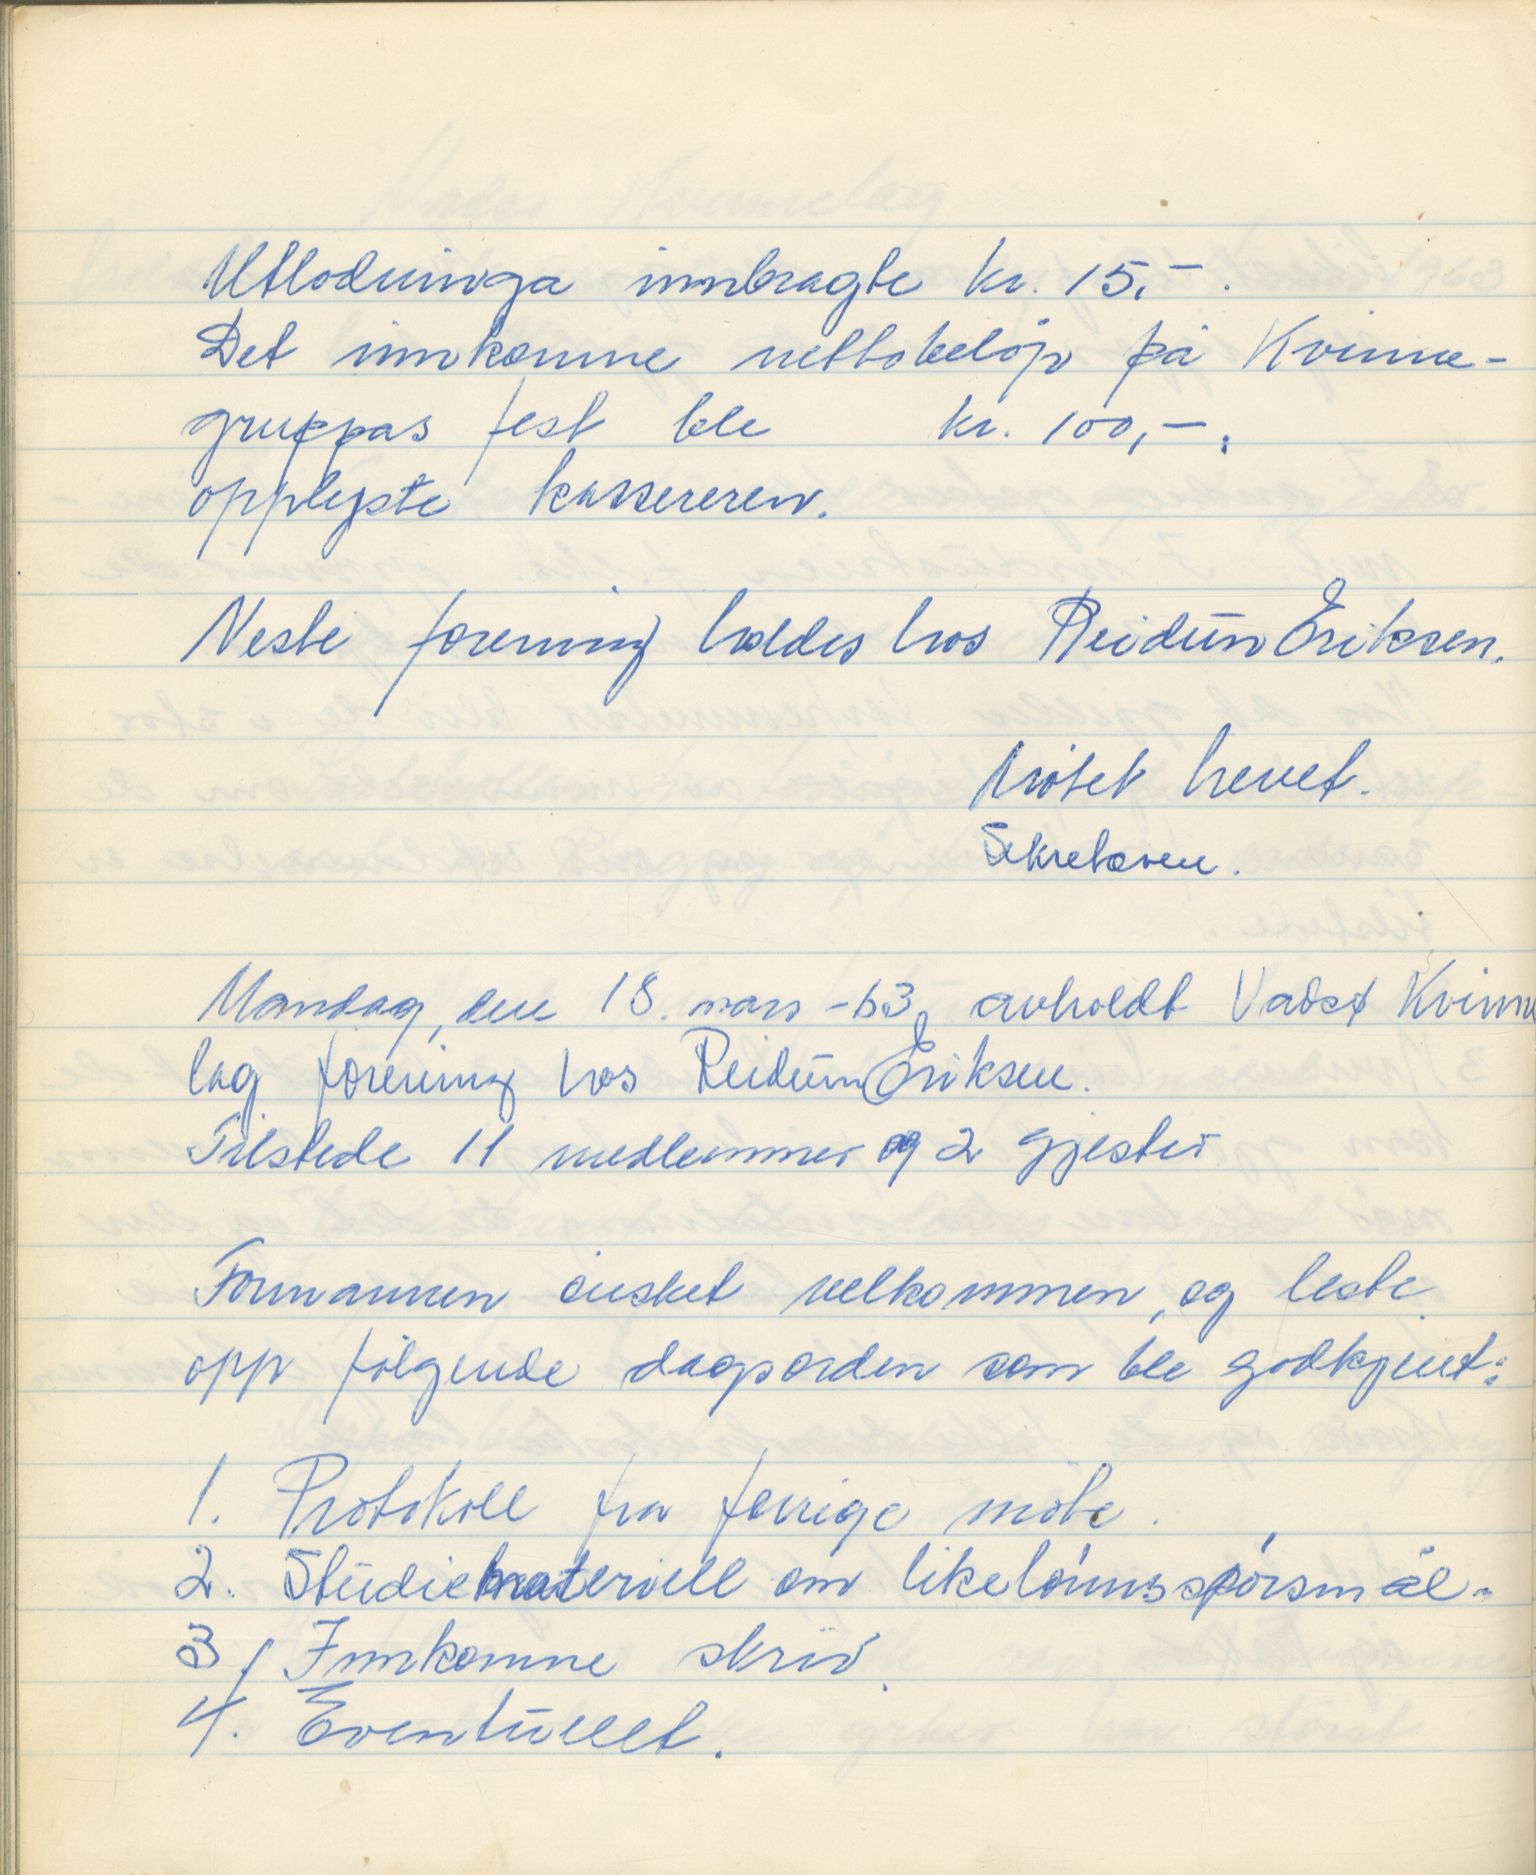 Utlodninga innbragte kr. 15,- .
Det innkomne nettobeløp på Kvinne-
gruppas fest ble kr. 100,-.
opplyste kassereren.
Neste forening holdes hos Reidun Eriksen.
Møtet hevet.
Sekretæren.
Mandag, den 18. mars -63, avholdt Vadsø Kvinne
lag forening hos Reidun Eriksen.
Tilstede 11 medlemmer og 2 gjester
Formannen ønsket velkommen, og leste
opp følgende dagsorden som ble godkjent:
1. Protokoll fra forrige møte.
2. Studiemateriell om likelønnsspørsmål.
3. Innkomne skriv.
4. Eventuellt.